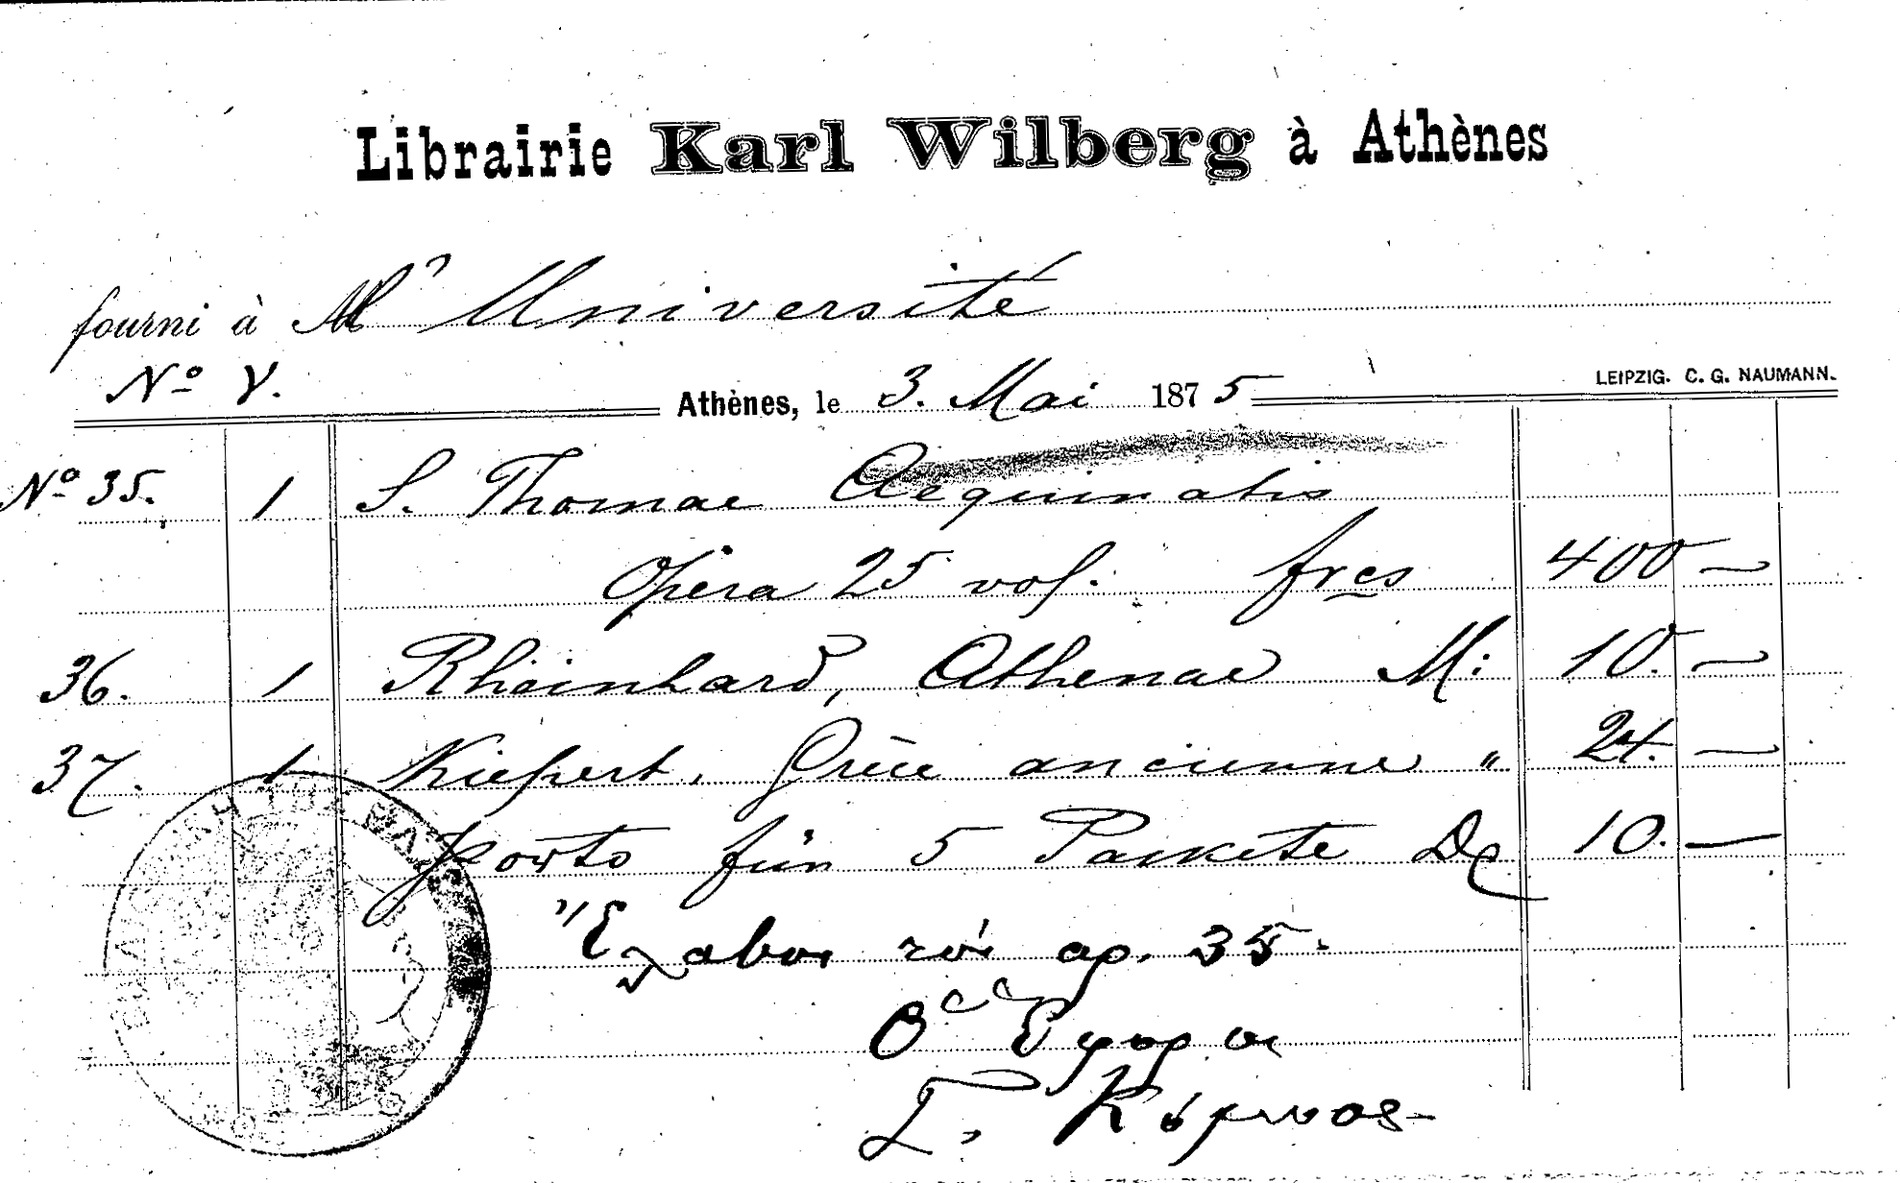 Librairie Karl Wilberg à Athènes
fourni à Mr Université
No V.
Athènes, le 3. Mai 1875
LEIPZIG. C. G. NAUMANN.
No 35. 1 S. Thomae Aequinatis
Opera 25 vol. frcs 400 —
36. 1 Rheinhard, Athenae M: 10. —
37. 1 Kiepert. Grèce ancienne " 24. —
porto für 5 Packete Dr 10. —
Ἔλαβον τὸν αρ. 35.
Ὁ Ἔφορος